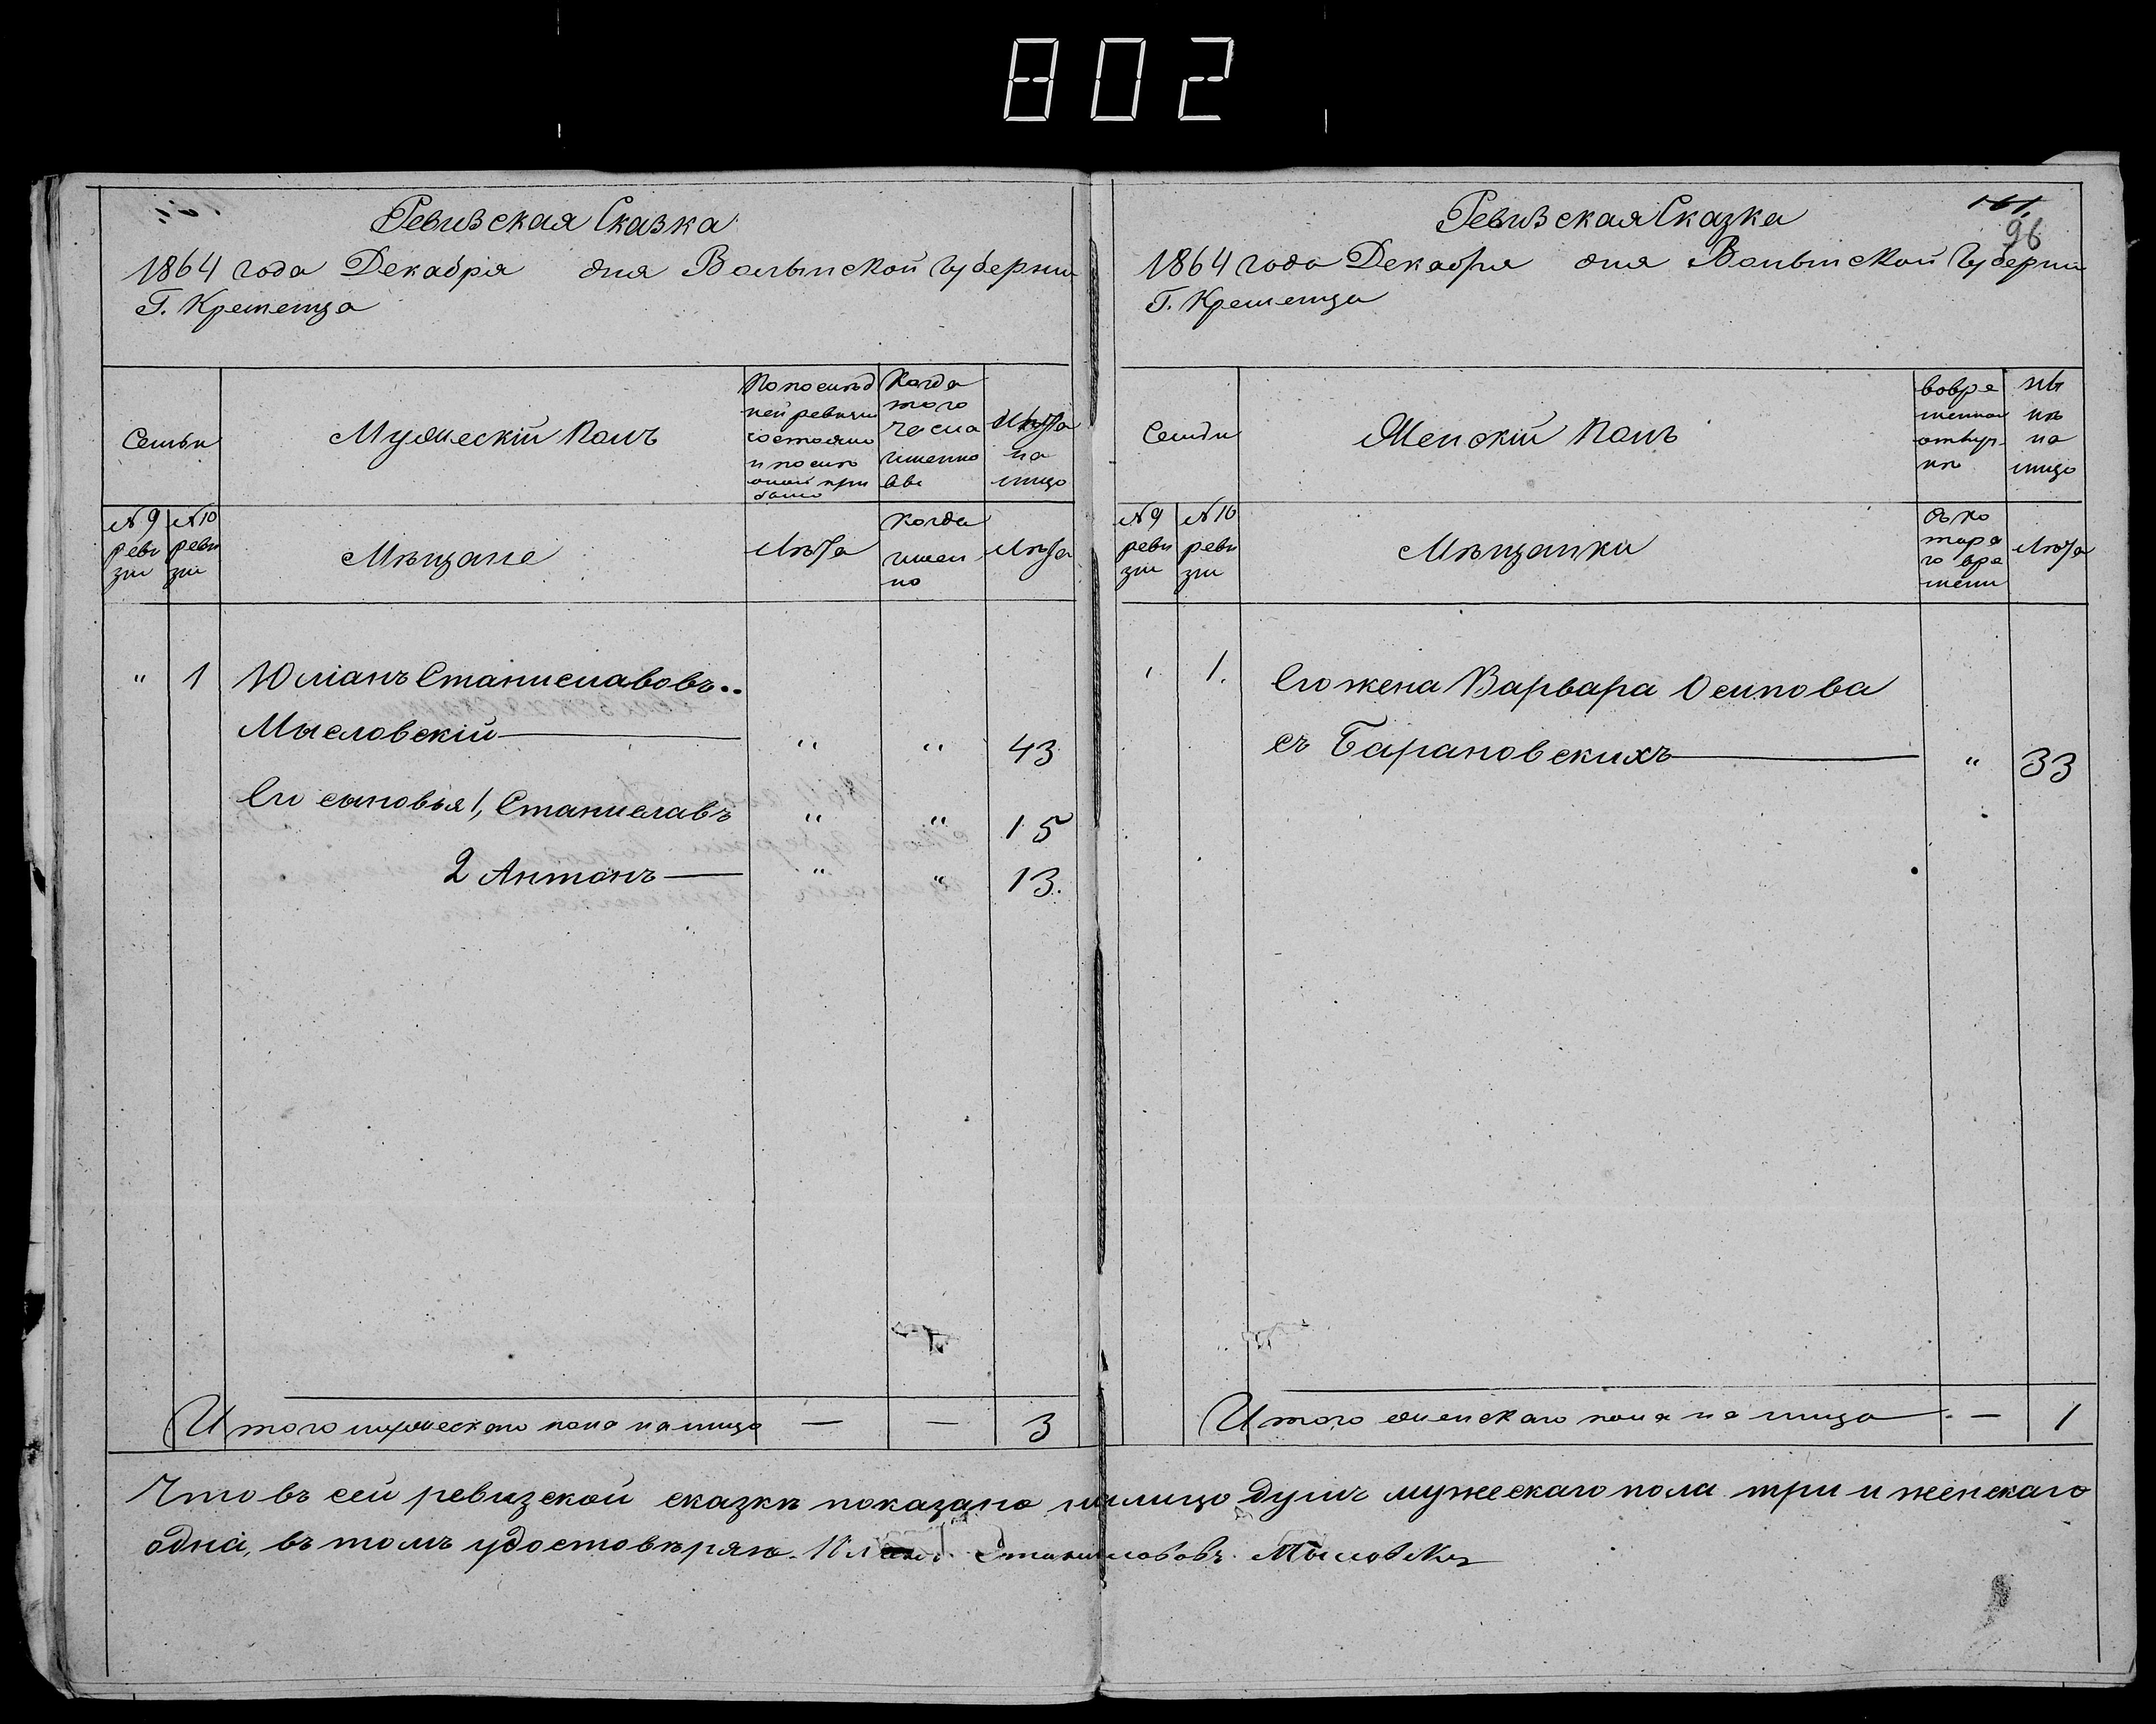 802
Ревизская Сказка
1864 года Декабря дня Волынской Губернии
Г. Кременца
Семьи
Мужескій Полъ
По послѣд
ней ревизіи
состояло
и послѣ
оной при
было
Когда
того
числа
именно
Лѣта
на
лицо
№ 9
реви
зіи
№ 10
реви
зіи
Мѣщане
Лѣта
Когда
имен
но
Лѣта
" 1 Юліанъ Станиславовъ
Мысловскій " " 43
Его сыновья 1, Станиславъ " " 15
2 Антонъ " " 13.
Итого мужескаго пола на лицо — — 3
161.
96
Ревизская Сказка
1864 года Декабря дня Волынской Губерніи
Г. Кременца
Семьи
Женскій Полъ
во вре
менной
отлуч
кѣ
нѣ
на
лицо
№ 9
реви
зіи
№ 10
реви
зіи
Мѣщанки
съ ко
тора
го вре
мени
Лѣта
1. Его жена Варвара Осипова
съ Барановскихъ " 33
Итого женскаго пола на лицо — 1
Что въ сей ревизской сказкѣ показано на лицо душъ мужескаго пола три и женскаго
одна, въ томъ удостовѣряю. Станиславовъ Мысловскій